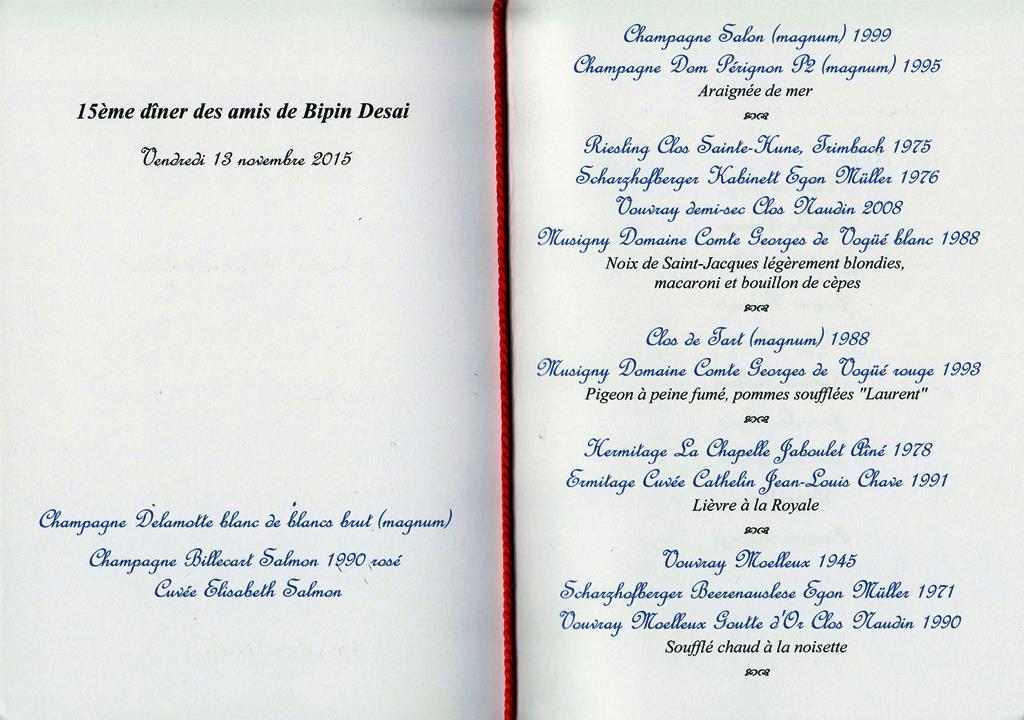 15ème dîner des amis de Bipin Desai
Vendredi 13 novembre 2015
Champagne Delamotte blanc de blancs brut (magnum)
Champagne Billecart Salmon 1990 rosé
Cuvée Elisabeth Salmon
Champagne Salon (magnum) 1999
Champagne Dom Pérignon P2 (magnum) 1995
Araignée de mer
Riesling Clos Sainte-Hune, Trimbach 1975
Scharzhofberger Kabinett Egon Müller 1976
Vouvray demi-sec Clos Naudin 2008
Musigny Domaine Comte Georges de Vogüé blanc 1988
Noix de Saint-Jacques légèrement blondies,
macaroni et bouillon de cèpes
Clos de Tart (magnum) 1988
Musigny Domaine Comte Georges de Vogüé rouge 1993
Pigeon à peine fumé, pommes soufflées "Laurent"
Hermitage La Chapelle Jaboulet Aîné 1978
Ermitage Cuvée Cathelin Jean-Louis Chave 1991
Lièvre à la Royale
Vouvray Moelleux 1945
Scharzhofberger Beerenauslese Egon Müller 1971
Vouvray Moelleux Goutte d'Or Clos Naudin 1990
Soufflé chaud à la noisette